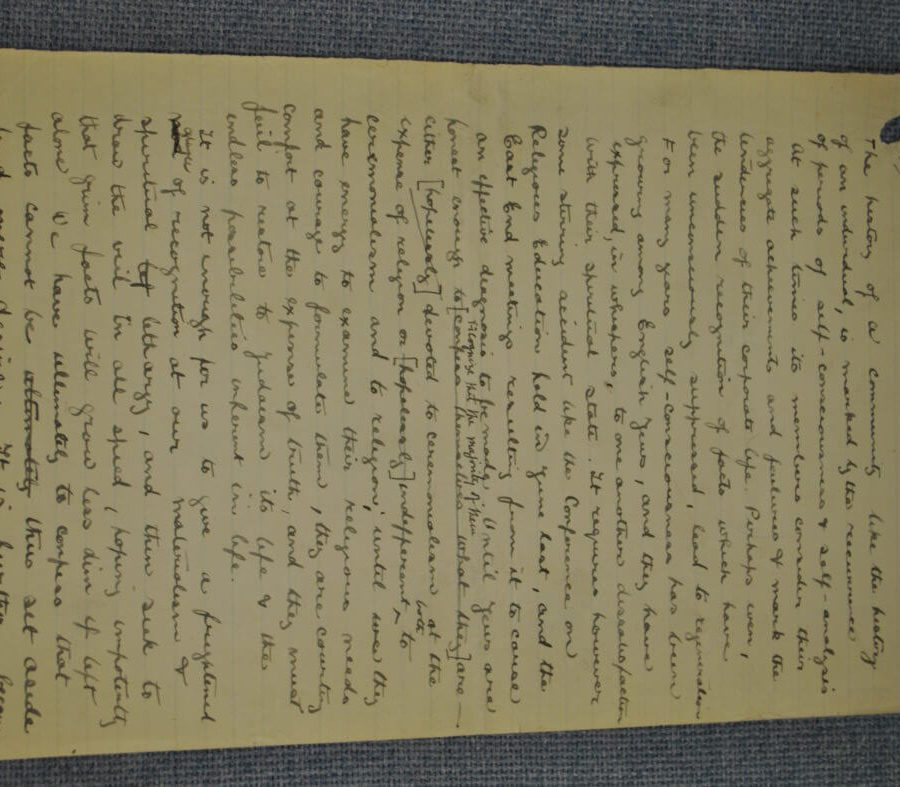 The history of a community like the history
of an individual, is marked by the recurrence
of periods of self-consciousness & self-analysis
At such times its members consider their
aggregate achievements and failures & mark the
tendencies of their corporate life. Perhaps even,
the sudden recognition of facts which have
been unconsciously suppressed, lead to regeneration
For many years self-consciousness has been
growing among English Jews, and they have
expressed, in whispers, to one another dissatisfaction
with their spiritual state. It requires however
some stirring accident like the Conference on
Religious Education held in June last, and the
East End meetings resulting from it to cause
an effective diagnosis to be made. Until Jews are
recognise that the majority of them
honest enough to [confess themselves what they] are —
either [hopelessly] devoted to ceremonialism at the
expense of religion or [hopelessly] indifferent to both
ceremonialism and to religion; until once they
have energy to examine their religious needs
and courage to formulate them, they are courting
comfort at the expense of truth, and they must
fail to restore to Judaism its life & the
endless possibilities inherent in life.
It is not enough for us to give a frightened
gaze of recognition at our materialism &
spiritual lethargy, and then seek to
draw the veil in all speed, hoping impotently
that grim facts will grow less dim if left
alone. We have ultimately to confess that
facts cannot be thus set aside